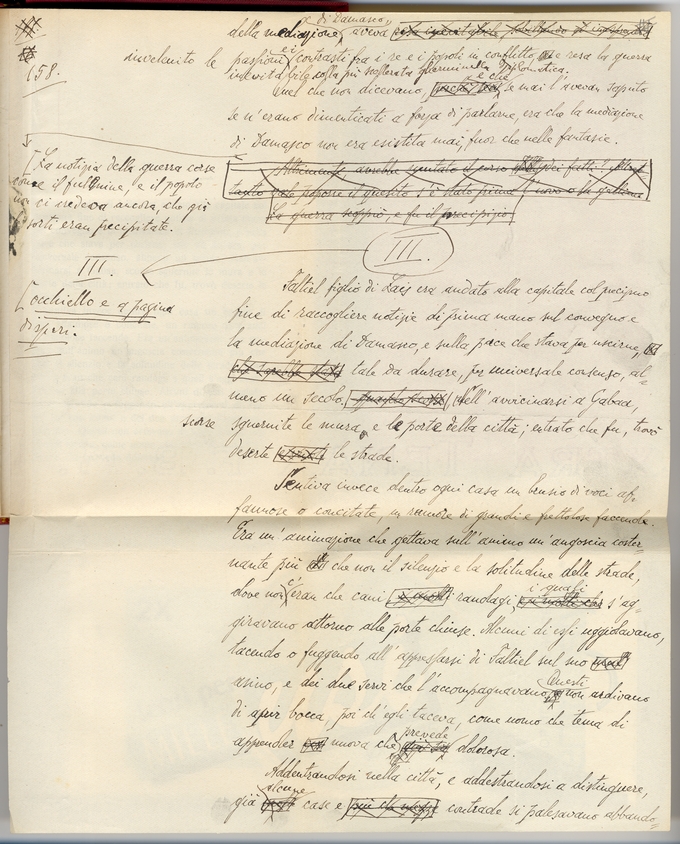 di Damasco,
della mediazione, aveva
158.
invelenito le passioni e i contrasti fra i re e i popoli in conflitto, e resa la guerra
inevitabile sotto più scellerata diplomatica.
Quel che non dicevano, e che se mai l'avevan saputo
se n'erano dimenticati a forza di parlarne, era che la mediazione
di Damasco non era esistita mai, fuor che nelle fantasie.
La notizia della guerra corse
come il fulmine, e il popolo
non ci credeva ancora, che già
sorti eran precipitate.
Altrimenti avrebbe mutato il corso dei fatti?
la guerra scoppiò, e fu il precipizio
III.
III.
occhiello e a pagina
dispari.
Saltiel figlio di Lais era andato alla capitale col preciso
fine di raccogliere notizie di prima mano sul convegno e
la mediazione di Damasco, e sulla pace che stava per uscirne,
tale da durare, per universale consenso, al-
meno un secolo. Nell'avvicinarsi a Gabaa,
scorse sguernite le mura e le porte della città; entrato che fu, trovò
deserte le strade.
Sentiva invece dentro ogni casa un brusio di voci af-
fannose o concitate, un rumore di grandi e frettolose faccende.
Era un'animazione che gettava sull'animo un'angoscia coster-
nante più che non il silenzio e la solitudine delle strade,
dove non c'eran che cani randagi, i quali s'ag-
giravano attorno alle porte chiuse. Alcuni di essi uggiolavano,
tacendo o fuggendo all'appressarsi di Saltiel sul suo
asino, e dei due servi che l'accompagnavano. Questi non ardivano
di aprir bocca, poi ch'egli taceva, come uomo che tema di
apprender nuova che prevede dolorosa.
Addentrandosi nella città, e addestrandosi a distinguere,
già alcune case e contrade si palesavano abbando-